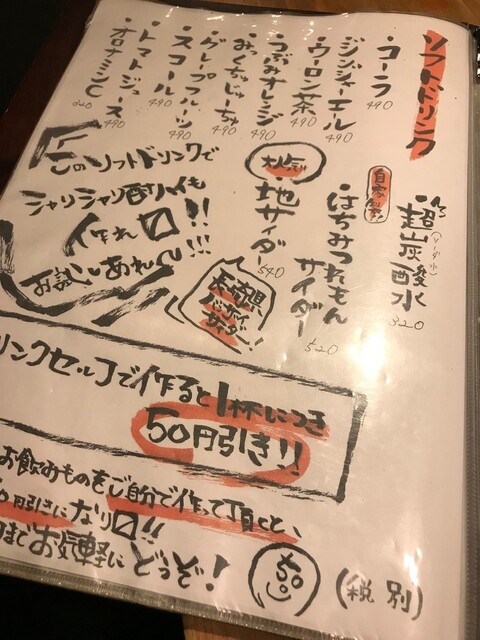 ソフトドリンク
コーラ 490
ジンジャーエール 490
ウーロン茶 490
つぶみオレンジ 490
みっくちゅじゅーちゅ 490
グレープフルーツ 490
スコール 490
トマトジュース 490
オロナミンC
超炭酸水
320
自家製
はちみつれもん
サイダー
520
大人気!!
地サイダー 540
バンザイ
サイダー!
このソフトドリンクで
シャリシャリ酎ハイも
作れ口!!
お試しあれ〜!!!
リンクセルフで作ると1杯につき
50円引き!!
お飲みものをご自分で作って頂くと、
0円引きになり口!!
までお気軽にどうぞ!
(税別)